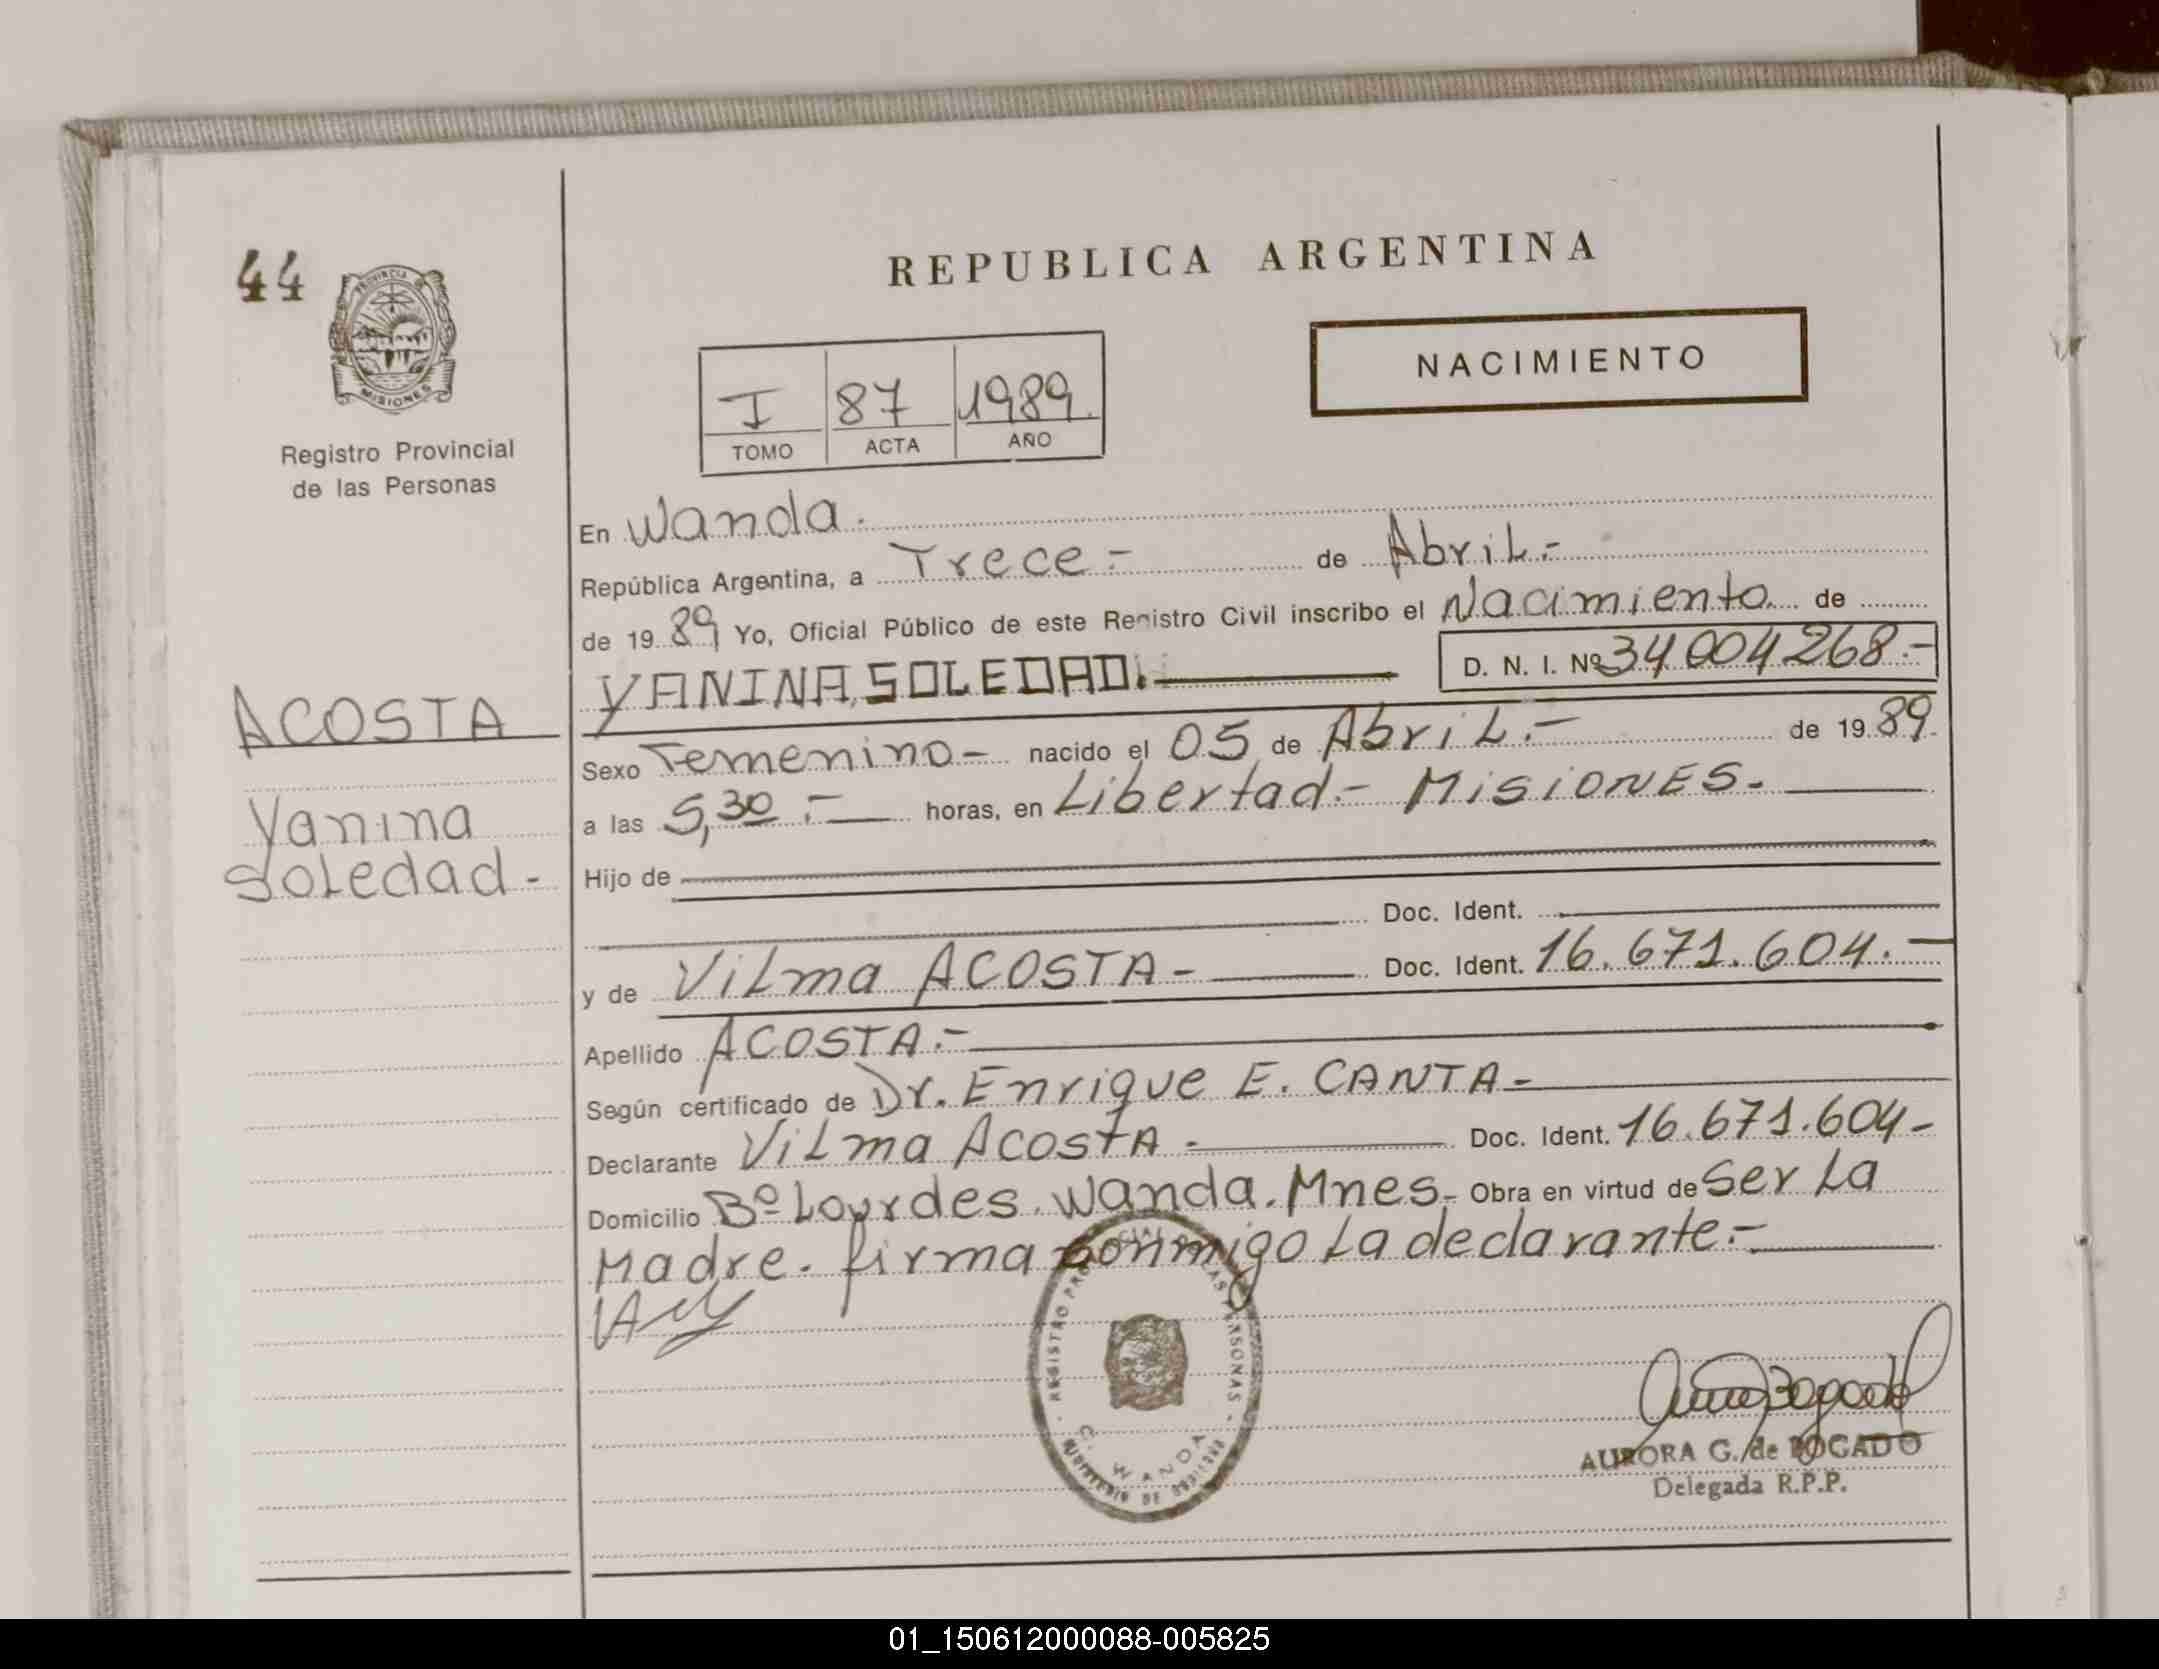 44
PROVINCIA DE
MISIONES
Registro Provincial
de las Personas
REPUBLICA ARGENTINA
NACIMIENTO
I 87 1989.
TOMO ACTA AÑO
En Wanda.
República Argentina, a Trece.- de Abril.-
de 1989 Yo, Oficial Público de este Registro Civil inscribo el Nacimiento de
YANINA SOLEDAD. D. N. I. Nº 34004268.-
ACOSTA
Sexo Femenino- nacido el 05 de Abril.- de 1989.
Yanina
Soledad-
a las 5,30.- horas, en Libertad.- MISIONES.
Hijo de
Doc. Ident.
y de Vilma ACOSTA- Doc. Ident. 16.671.604.-
Apellido ACOSTA.-
Según certificado de Dr. Enrique E. CANTA-
Declarante Vilma ACOSTA- Doc. Ident. 16.671.604-
Domicilio Bº Lourdes. Wanda. Mnes. Obra en virtud de Ser La
Madre. firma conmigo La declarante.-
REGISTRO PROVINCIAL DE LAS PERSONAS
WANDA
MINISTERIO DE GOBIERNO
AURORA G. de BOGADO
Delegada R.P.P.
01_150612000088-005825